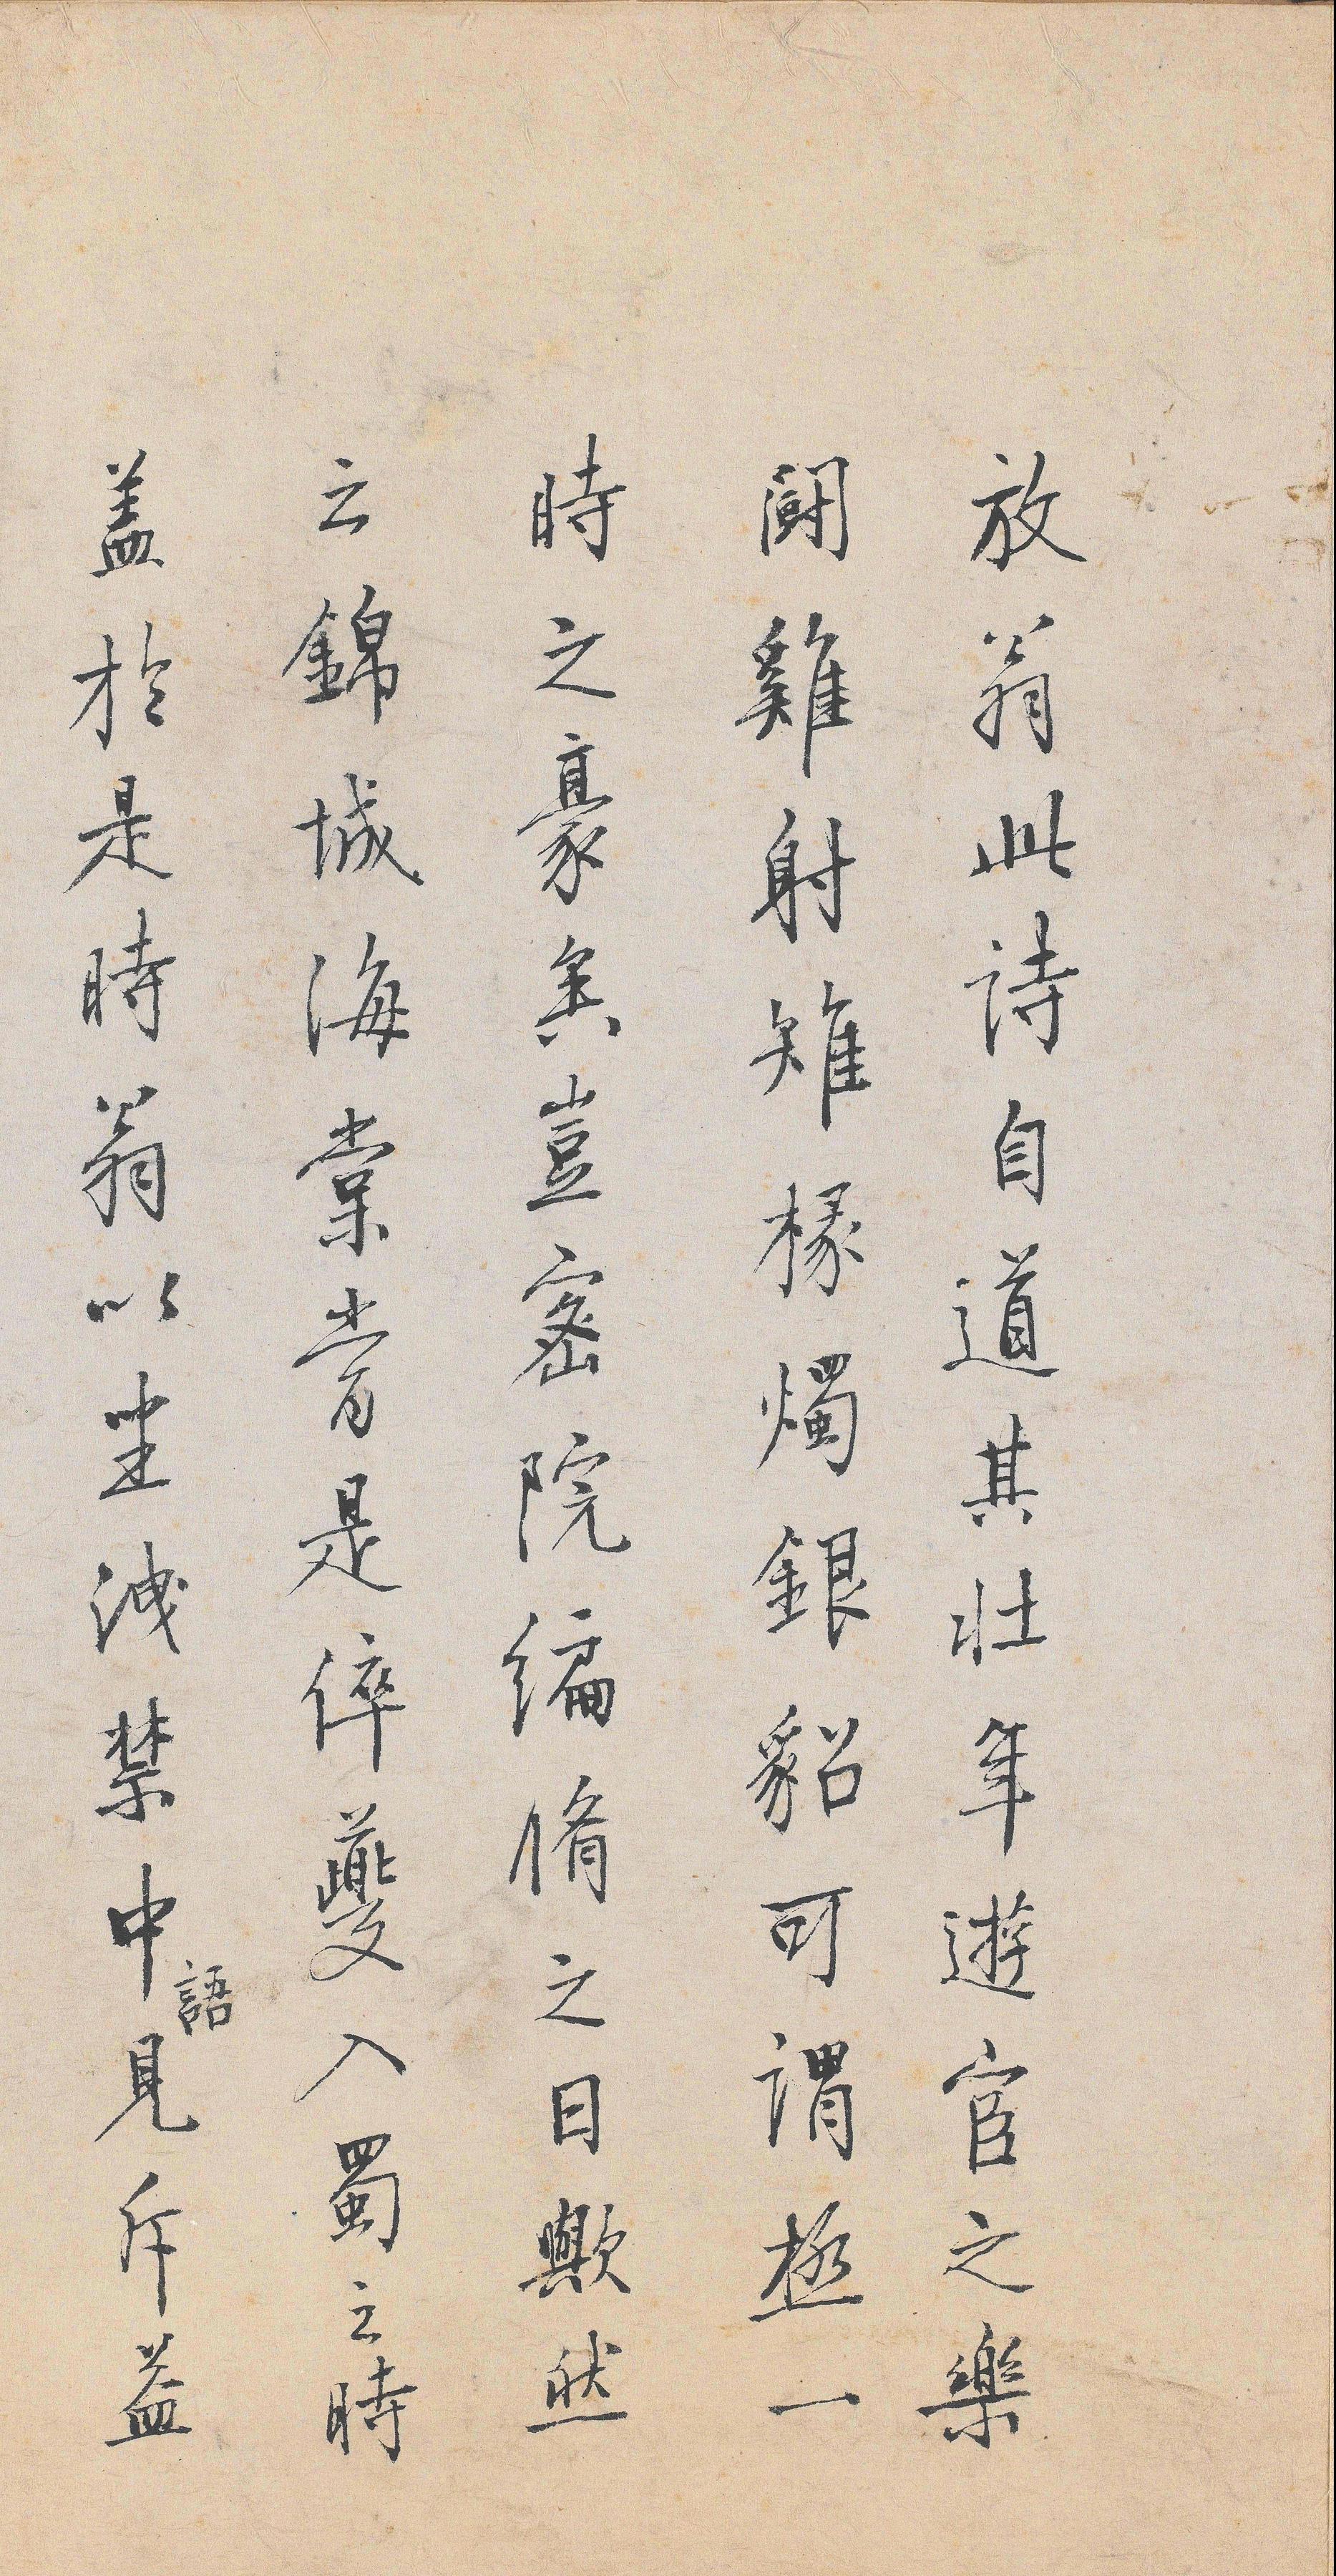 放翁此詩自道其壯年遊宦之樂
鬬雞射雉椽燭銀貂可謂極一
時之豪矣豈密院編脩之日歟然
云錦城海棠當是倅夔入蜀之時
蓋於是時翁以坐洩禁中語見斥益